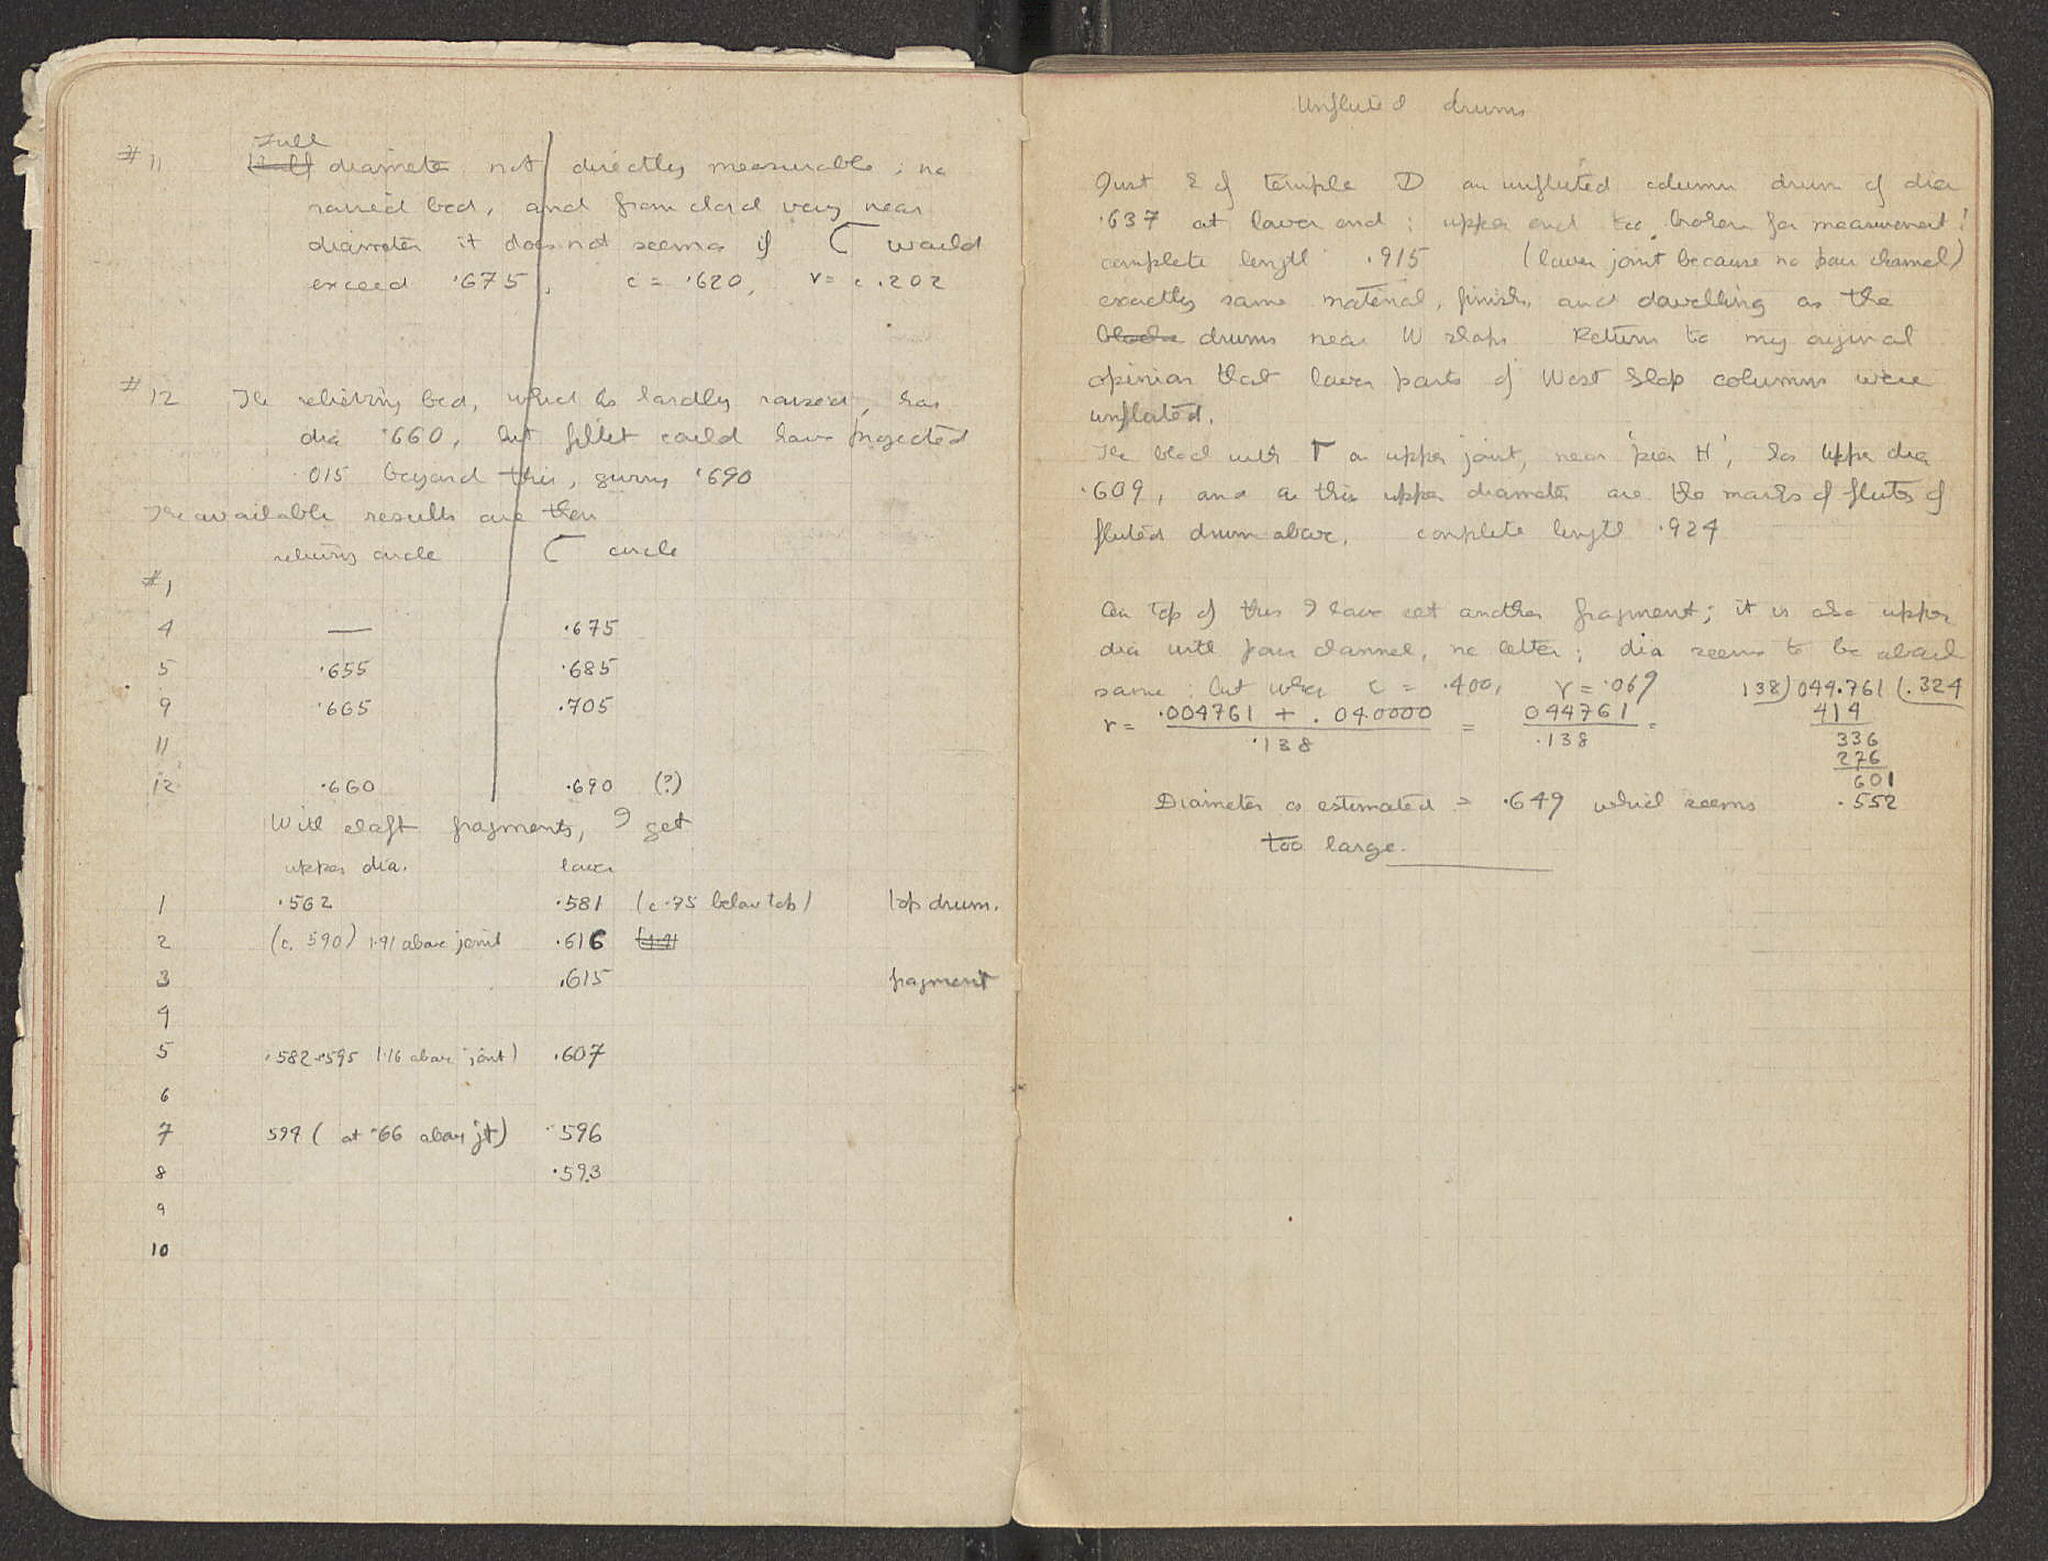 Full
#11 diameter not directly measurable; no
raised bed, and from chord very near
diameter it does not seem as if would
exceed .675, c = .620, r = c .202
#12 The relieving bed, which is hardly raised, has
dia .660, but fillet could have projected
.015 beyond this, giving .690
The available results are then
relieving circle circle
#1
4 — .675
5 .655 .685
9 .665 .705
11
12 .660 .690 (?)
With shaft fragments, I get
upper dia. lower
1 .562 .581 (c .75 below top) top drum.
2 (c. 590) 1.91 above joint .616
3 .615 fragment
4
5 .582 .595 1.16 above joint) .607
6
7 599 ( at .66 above jt) .596
8 .593
9
10
Unfluted drums
Just E of temple D an unfluted column drum of dia
.637 at lower end; upper end too broken for measurement!
complete length .915 (lower joint because no pour channel)
exactly same material, finish, and dowelling as the
blocks drums near W slope Return to my original
opinion that lower parts of West Slop columns were
unfluted.
The block with Γ on upper joint, near 'pier H', has upper dia
.609, and on this upper diameter are the marks of flutes of
fluted drum above. complete length .924
On top of this I have set another fragment; it is also upper
dia with pour channel, no letter; dia seems to be about
same; but when c = .400, r = .069 138)044.761(.324
r = .004761 + .040000 = 044761 = 414
.138 .138 336
276
601
Diameter as estimated = .649 which seems .552
too large.